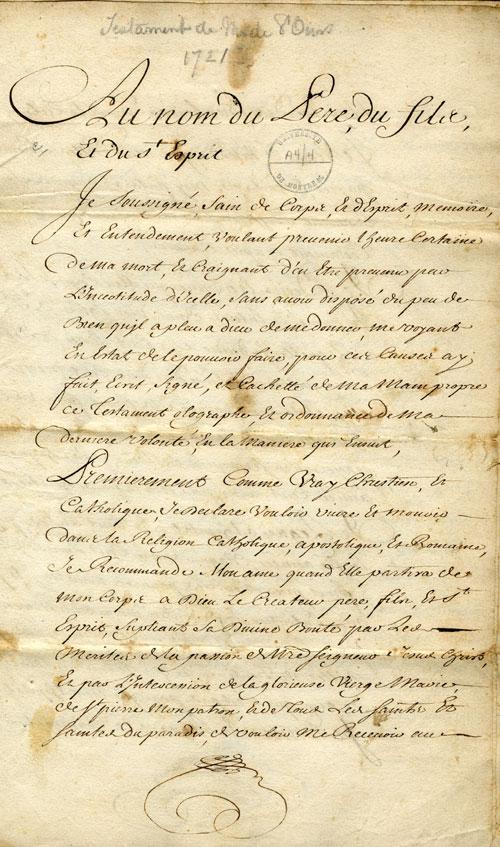 Testament de M. de
1721
Au nom du Pere, du fils,
Et du St Esprit
UNIVERSITÉ
A4/4
DE MONTREAL
Je Soussigné Sain de Corps, Et d'Esprit, memoire,
Et Entendement, Voulant prevenir l'heure Certaine
de ma mort, Et Craignant d'en Etre prevenu par
L'Incertitude d'Icelle, Sans avoir disposé du peu de
Bien quil a pleu a dieu de me donner, me voyant
En Estat de le pouvoir faire, pour ces Causes ay
fait, Ecrit, Signé, et Cachetté de Ma Main propre
ce Testament olographe, Et ordonnance de Ma
derniere Volonté, En la Maniere qui Ensuit,
Premierement Comme Vray Chrestien, Et
Catholique, Je declare Vouloir vivre Et mourir
dans la Religion Catholique, apostolique, Et Romaine,
Je Recommande Mon ame quand Elle partira de
mon Corps a Dieu Le Createur pere, fils, Et St
Esprit, Supliant Sa Divine Bonté, par Les
Merites de la passion de Nre Seigneur Jesus Christ,
Et par L'Intercession de la glorieuse Vierge Marie,
de St pierre Mon patron, & de Tous Les Saints Et
Saintes du paradis, de vouloir Me Recevoir au